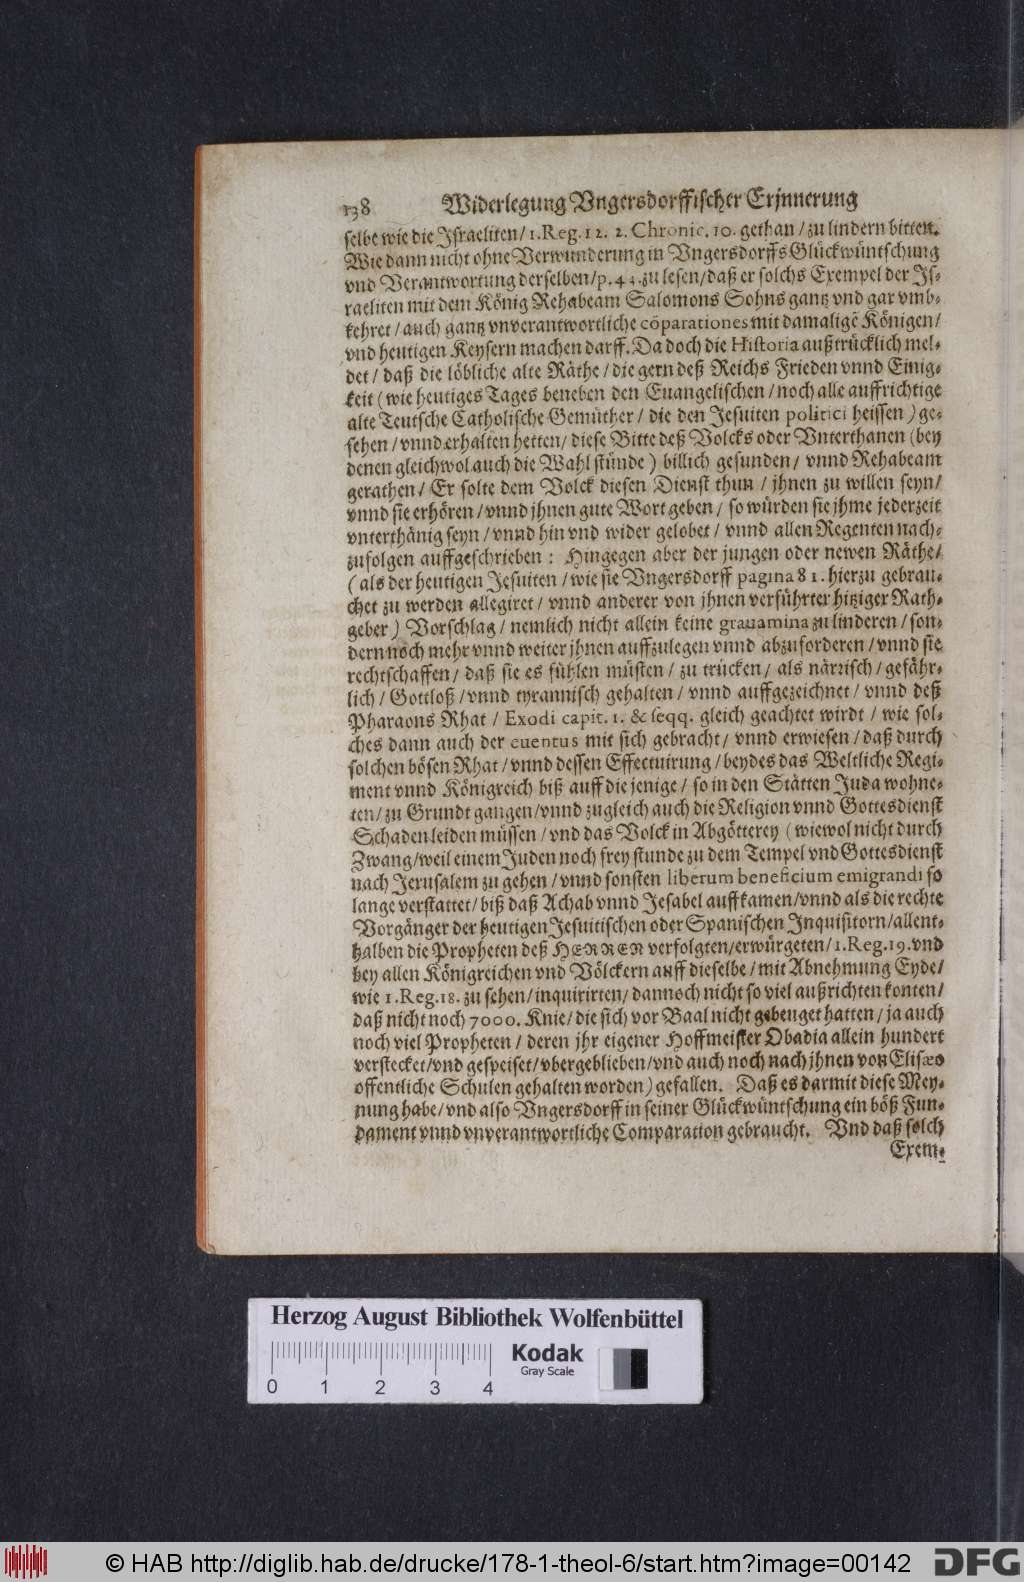 138 Widerlegung Vngersdorffischer Erjnnerung
selbe wie die Jsraeliten/ 1. Reg. 12. 2. Chronic. 10. gethan/ zu lindern bitten.
Wie dann nicht ohne Verwunderung in Vngersdorffs Glückwüntschung
vnd Verantwortung derselben/ p. 44. zu lesen/ daß er solchs Exempel der Js-
raeliten mit dem König Rehabeam Salomons Sohns gantz vnd gar vmb-
kehret/ auch gantz vnverantwortliche cōparationes mit damaligē Königen/
vnd heutigen Keysern machen darff. Da doch die Historia außtrücklich mel-
det/ daß die löbliche alte Räthe/ die gern deß Reichs Frieden vnnd Einig-
keit (wie heutiges Tages beneben den Euangelischen/ noch alle auffrichtige
alte Teutsche Catholische Gemüther/ die den Jesuiten politici heissen) ge-
sehen/ vnnd erhalten hetten/ diese Bitte deß Volcks oder Vnterthanen (bey
denen gleichwol auch die Wahl stünde) billich gefunden/ vnnd Rehabeam
gerathen/ Er solte dem Volck diesen Dienst thun/ jhnen zu willen seyn/
vnnd sie erhören/ vnnd jhnen gute Wort geben/ so würden sie jhme jederzeit
vnterthänig seyn/ vnnd hin vnd wider gelobet/ vnnd allen Regenten nach-
zufolgen auffgeschrieben: Hingegen aber der jungen oder newen Räthe/
(als der heutigen Jesuiten/ wie sie Vngersdorff pagina 81. hierzu gebrau-
chet zu werden allegiret/ vnnd anderer von jhnen verführter hitziger Rath-
geber) Vorschlag/ nemlich nicht allein keine grauamina zu linderen/ son-
dern noch mehr vnnd weiter jhnen auffzulegen vnnd abzuforderen/ vnnd sie
rechtschaffen/ daß sie es fühlen müsten/ zu trücken/ als närrisch/ gefähr-
lich/ Gottloß/ vnnd tyrannisch gehalten/ vnnd auffgezeichnet/ vnnd deß
Pharaons Rhat/ Exodi capit. 1. & seqq. gleich geachtet wirdt/ wie sol-
ches dann auch der euentus mit sich gebracht/ vnnd erwiesen/ daß durch
solchen bösen Rhat/ vnnd dessen Effectuirung/ beydes das Weltliche Regi-
ment vnnd Königreich biß auff die jenige/ so in den Stätten Juda wohne-
ten/ zu Grundt gangen/ vnnd zugleich auch die Religion vnnd Gottesdienst
Schaden leiden müssen/ vnd das Volck in Abgötterey (wiewol nicht durch
Zwang/ weil einem Juden noch frey stunde zu dem Tempel vnd Gottesdienst
nach Jerusalem zu gehen/ vnnd sonsten liberum beneficium emigrandi so
lange verstattet/ biß daß Achab vnnd Jesabel auffkamen/ vnnd als die rechte
Vorgänger der heutigen Jesuitischen oder Spanischen Inquisitorn/ allent-
halben die Propheten deß HERREN verfolgten/ erwürgeten/ 1. Reg. 19. vnd
bey allen Königreichen vnd Völckern auff dieselbe/ mit Abnehmung Eyde/
wie 1. Reg. 18. zu sehen/ inquirirten/ dannoch nicht so viel außrichten konten/
daß nicht noch 7000. Knie/ die sich vor Baal nicht gebeuget hatten/ ja auch
noch viel Propheten/ deren jhr eigener Hoffmeister Obadia allein hundert
verstecket/ vnd gespeiset/ vbergeblieben/ vnd auch noch nach jhnen von Elisæo
offentliche Schulen gehalten worden) gefallen. Daß es darmit diese Mey-
nung habe/ vnd also Vngersdorff in seiner Glückwüntschung ein böß Fun-
dament vnnd vnverantwortliche Comparation gebraucht. Vnd daß solch
Exem-
Herzog August Bibliothek Wolfenbüttel
Kodak
Gray Scale
0 1 2 3 4
© HAB http://diglib.hab.de/drucke/178-1-theol-6/start.htm?image=00142 DFG